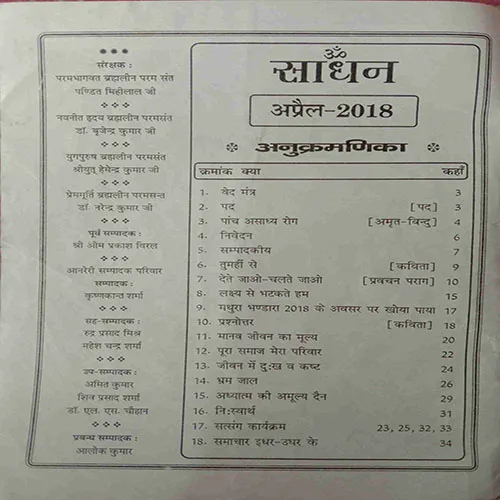 संरक्षक :
परमभागवत ब्रह्मलीन परम संत
पण्डित मिहीलाल जी
नवनीत हृदय ब्रह्मलीन परमसंत
डॉ. बृजेन्द्र कुमार जी
युगपुरुष ब्रह्मलीन परमसंत
श्रीयुत् हेमेन्द्र कुमार जी
प्रेममूर्ति ब्रह्मलीन परमसन्त
डॉ. नरेन्द्र कुमार जी
पूर्व सम्पादक :
श्री ओम प्रकाश विरल
आनरेरी सम्पादक परिवार
सम्पादक :
कृष्णकान्त शर्मा
सह-सम्पादक :
रुद्र प्रसाद मिश्र
महेश चन्द्र शर्मा
उप-सम्पादक :
अमित कुमार
शिव प्रसाद शर्मा
डॉ. एल. एस. चौहान
प्रबन्ध सम्पादक :
आलोक कुमार
ॐ
साधन
अप्रैल-2018
अनुक्रमणिका
क्रमांक क्या कहाँ
1. वेद मंत्र 3
2. पद [पद] 3
3. पांच असाध्य रोग [अमृत-बिन्दु] 4
4. निवेदन 6
5. सम्पादकीय 7
6. तुमहीं से [कविता] 9
7. देते जाओ-चलते जाओ [प्रवचन पराग] 10
8. लक्ष्य से भटकते हम 15
9. मथुरा भण्डारा 2018 के अवसर पर खोया पाया 17
10. प्रश्नोत्तर [कविता] 18
11. मानव जीवन का मूल्य 20
12. पूरा समाज मेरा परिवार 22
13. जीवन में दुःख व कष्ट 24
14. भ्रम जाल 26
15. अध्यात्म की अमूल्य दैन 29
16. निःस्वार्थ 31
17. सत्संग कार्यक्रम 23, 25, 32, 33
18. समाचार इधर-उधर के 34